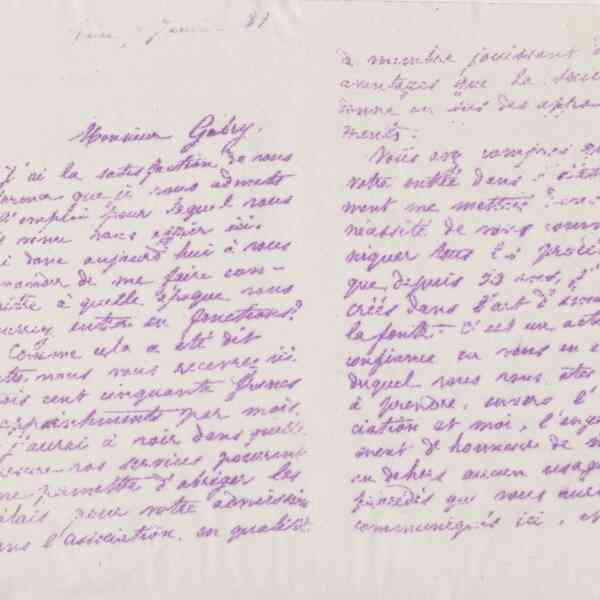 Janvier 87
Monsieur Gabry,
J'ai la satisfaction de vous
former que je vous admets
l'emploi pour lequel vous
venu vous offrir ici.
donc aujourd'hui à vous
mander de me faire con-
aître à quelle époque vous
ourrez entrer en fonctions?
Comme cela a été dit
nous vous recevrez ici
ois cent cinquante francs
appointements par mois.
J'aurai à voir dans quelle
mesure vos services pourront
me permettre d'abréger les
élais pour votre admission
ans l'association, en qualité
de membre jouissant
avantages que la Soc
donne en sus des appoin
ments.
Vous avez compris q
votre entrée dans l'éta
ment me mettrait
nécessité de vous commu
niquer tous les procé
que depuis 20 ans, j'
créés dans l'art d'
la fonte. C'est un acte
confiance en vous en
duquel vous vous êtes
à prendre, envers l'
ciation et moi, l'enga
ment de honneur de n
en dehors aucun usag
procédés que vous aure
communiqués ici,